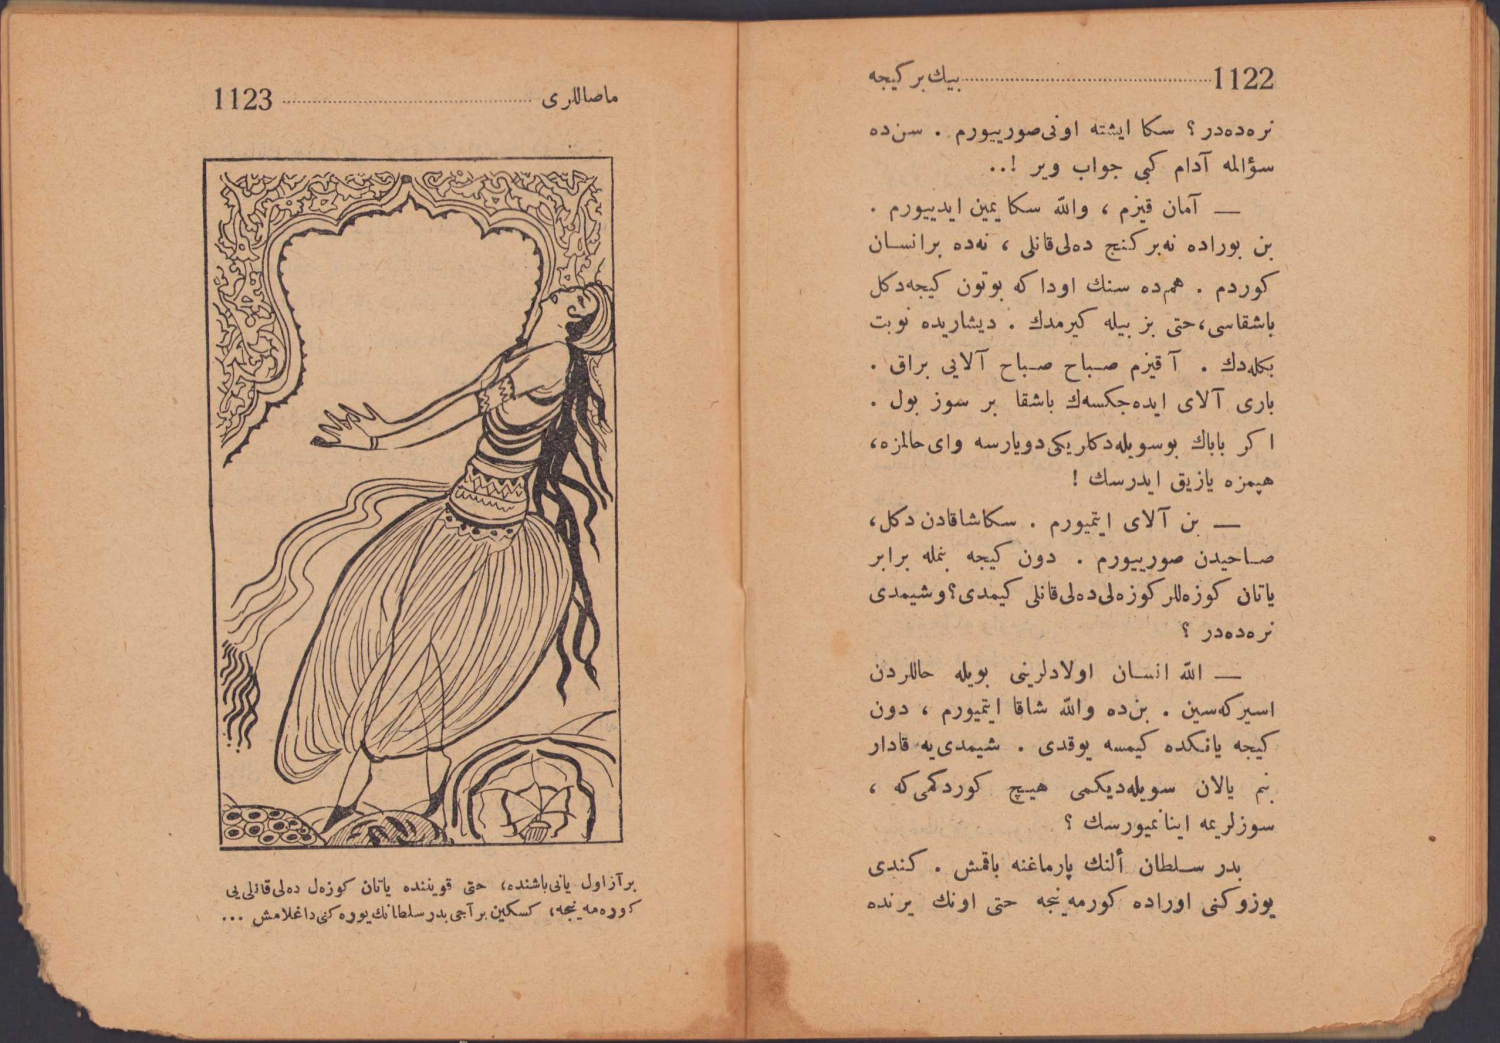 1122 بیك بر کیجه
نره‌ده‌در ؟ سکا ایشته اونی صورییورم . سن‌ده
سؤالمه آدام کبی جواب ویر !..
— آمان قیزم ، والله سکا یمین ایدییورم .
بن بوراده نه‌بر کنج ده‌لی‌قانلی ، نه‌ده برانسان
کوردم . هم‌ده سنك اوداکه بوتون کیجه‌دکل
باشقاسی،حتی بز بیله کیرمدك . دیشاریده نوبت
بکله‌دك . آ قیزم صباح صباح آلایی براق .
باری آلای ایده‌جکسه‌ك باشقا بر سوز بول .
اکر باباك بوسویله‌دکاریکی‌دویارسه وای‌حالمزه،
هپمزه یازیق ایدرسك !
— بن آلای ایتمیورم . سکاشاقادن دکل،
صاحیدن صورییورم . دون کیجه بنمله برابر
یاتان کوزه‌للر کوزه‌لی‌ده‌لی‌قانلی کیمدی؟وشیمدی
نره‌ده‌در ؟
— الله انسان اولادلرینی بویله حاللردن
اسیرکه‌سین . بن‌ده والله شاقا ایتمیورم ، دون
کیجه یانکده کیمسه یوقدی . شیمدی‌یه قادار
بنم یالان سویله‌دیکمی هیچ کوردکمی‌که ،
سوزلریمه اینانمیورسك ؟
بدر سلطان ألنك پارماغنه باقمش . کندی
یوزوکنی اوراده کورمه‌ینجه حتی اونك یرنده
ماصاللری 1123
برآزاول یانی‌باشنده، حتی قویننده یاتان کوزه‌ل ده‌لی‌قانلی‌یی
کوره‌مه‌ینجه، کسکین برآجی‌بدرسلطانك‌یوره‌کنی‌داغلامش ...